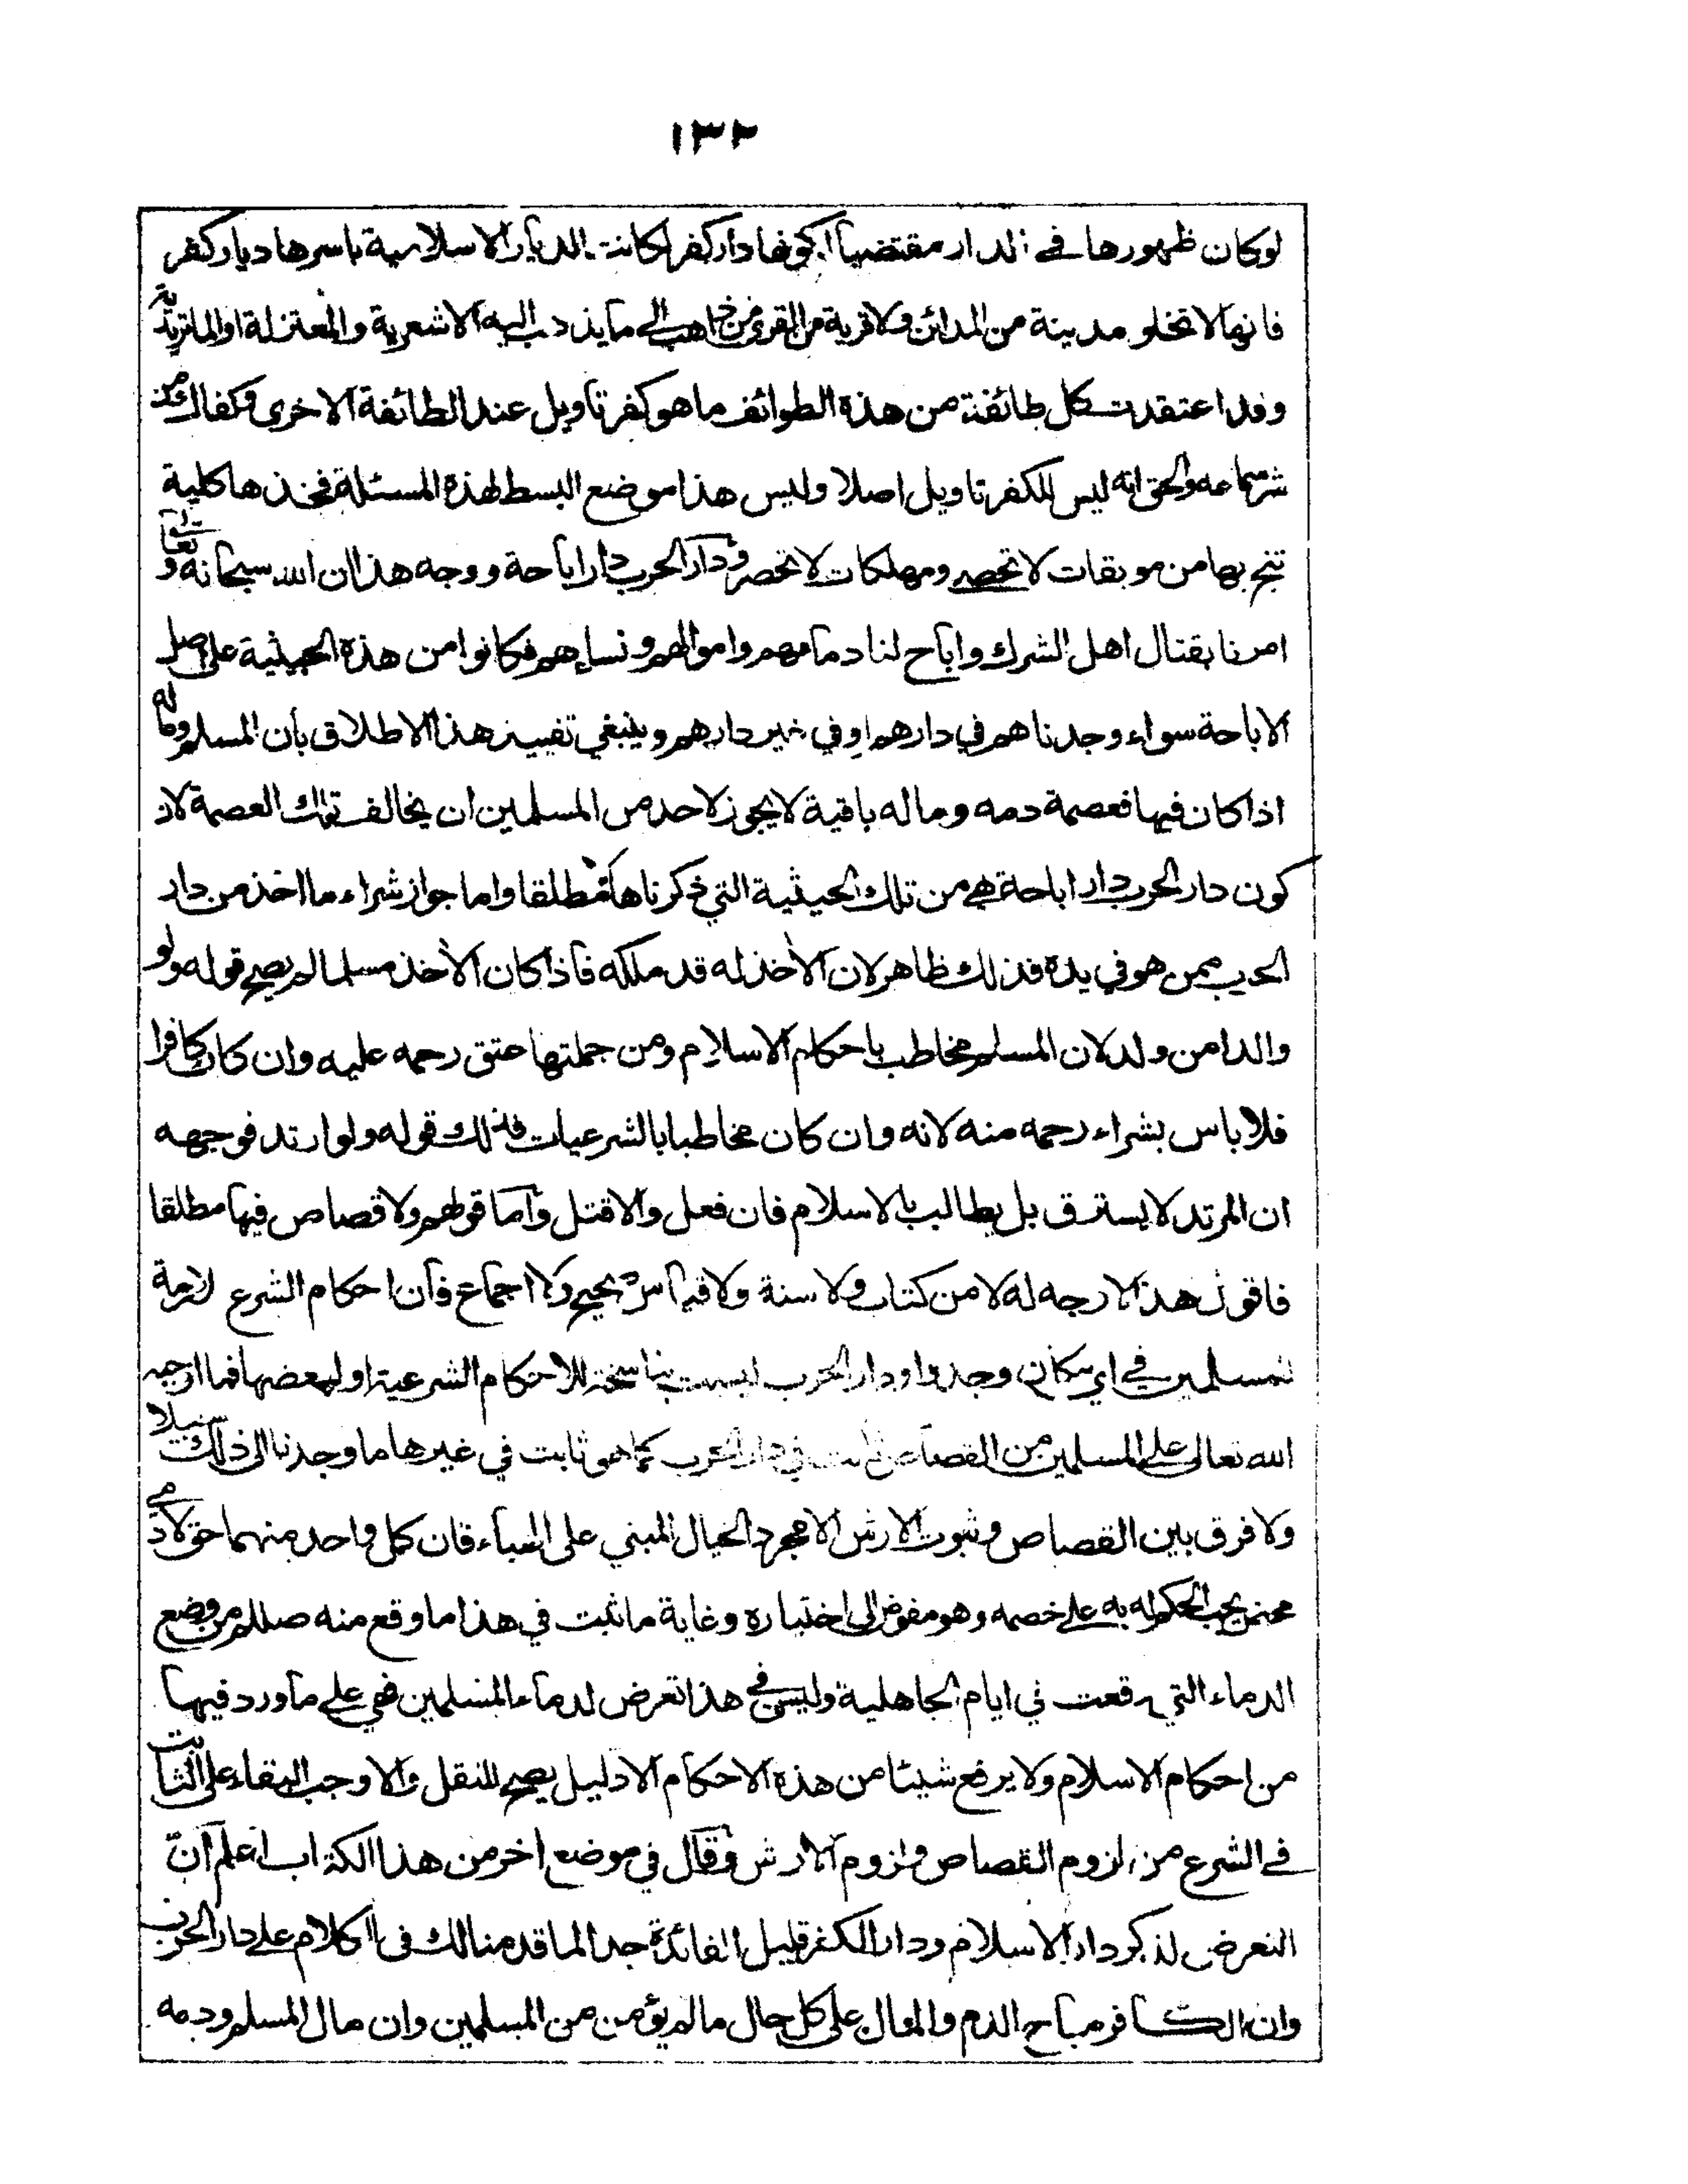 ١٣٢
لو كان ظهورها في الدار مقتضيا لكونها دار كفر لكانت الديار الاسلامية باسرها ديار كفر
فانها لا تخلو مدينة من المدائن ولا قرية من القرى من ذاهب الى ما يذهب اليه الاشعرية والمعتزلة او الماتريدية
وقد اعتقدت كل طائفة من هذه الطوائف ما هو كفر تاويل عند الطائفة الاخرى وكفاك من
شر سماعه والحق انه ليس للكفر تاويل اصلا وليس هذا موضع البسط لهذه المسئلة فخذها كلية
تنج بها من موبقات لا تحصى ومهلكات لا تحصر ودار الحرب دار اباحة ووجه هذا ان الله سبحانه وتعالى
امرنا بقتال اهل الشرك واباح لنا دماءهم واموالهم ونساءهم فكانوا من هذه الحيثية على اصل
الاباحة سواء وجدناهم في دارهم او في غير دارهم وينبغي تقييد هذا الاطلاق بأن المسلم وماله
اذا كان فيها فعصمة دمه وماله باقية لا يجوز لاحد من المسلمين ان يخالف تلك العصمة لان
كون دار الحرب دار اباحة هي من تلك الحيثية التي ذكرناها لا مطلقا واما جواز شراء ما اخذ من دار
الحرب ممن هو في يده فذلك ظاهر لان الآخذ له قد ملكه فاذا كان الآخذ مسلما لم يصح قوله ولو
والدا من ولد لان المسلم مخاطب باحكام الاسلام ومن جملتها عتق رحمه عليه وان كان كافرا
فلا باس بشراء رحمه منه لانه وان كان مخاطبا بالشرعيات فذلك قوله ولو ارتد فوجهه
ان المرتد لا يسترق بل يطالب بالاسلام فان فعل والا قتل وأما قولهم ولا قصاص فيها مطلقا
فاقول هذا لا وجه له لا من كتاب ولا سنة ولا قياس صحيح ولا اجماع فأن احكام الشرع لازمة
للمسلمين في اي مكان وجدوا ودار الحرب ليست بناسخة للاحكام الشرعية او لبعضها فما اوجبه
الله تعالى على المسلمين من القصاص ثابت في دار الحرب كما هو ثابت في غيرها ما وجدنا الى ذلك سبيلا
ولا فرق بين القصاص وثبوت الارش الا مجرد الخيال المبني على الهباء فان كل واحد منهما حق لآدمي
محض يجب الحكم له به على خصمه وهو مفوض الى اختياره وغاية ما ثبت في هذا ما وقع منه صللم من وضع
الدماء التي وقعت في ايام الجاهلية وليس في هذا تعرض لدماء المسلمين فهي على ما ورد فيها
من احكام الاسلام ولا يرفع شيئا من هذه الاحكام الا دليل يصح للنقل والا وجب البقاء على الثابت
في الشرع من لزوم القصاص ولزوم الارش وقال في موضع اخر من هذا الكتاب اعلم أنّ
التعرض لذكر دار الاسلام ودار الكفر قليل الفائدة جدا لما قدمنا لك في الكلام على دار الحرب
وان الكافر مباح الدم والمال على كل حال ما لم يؤمن من المسلمين وان مال المسلم ودمه